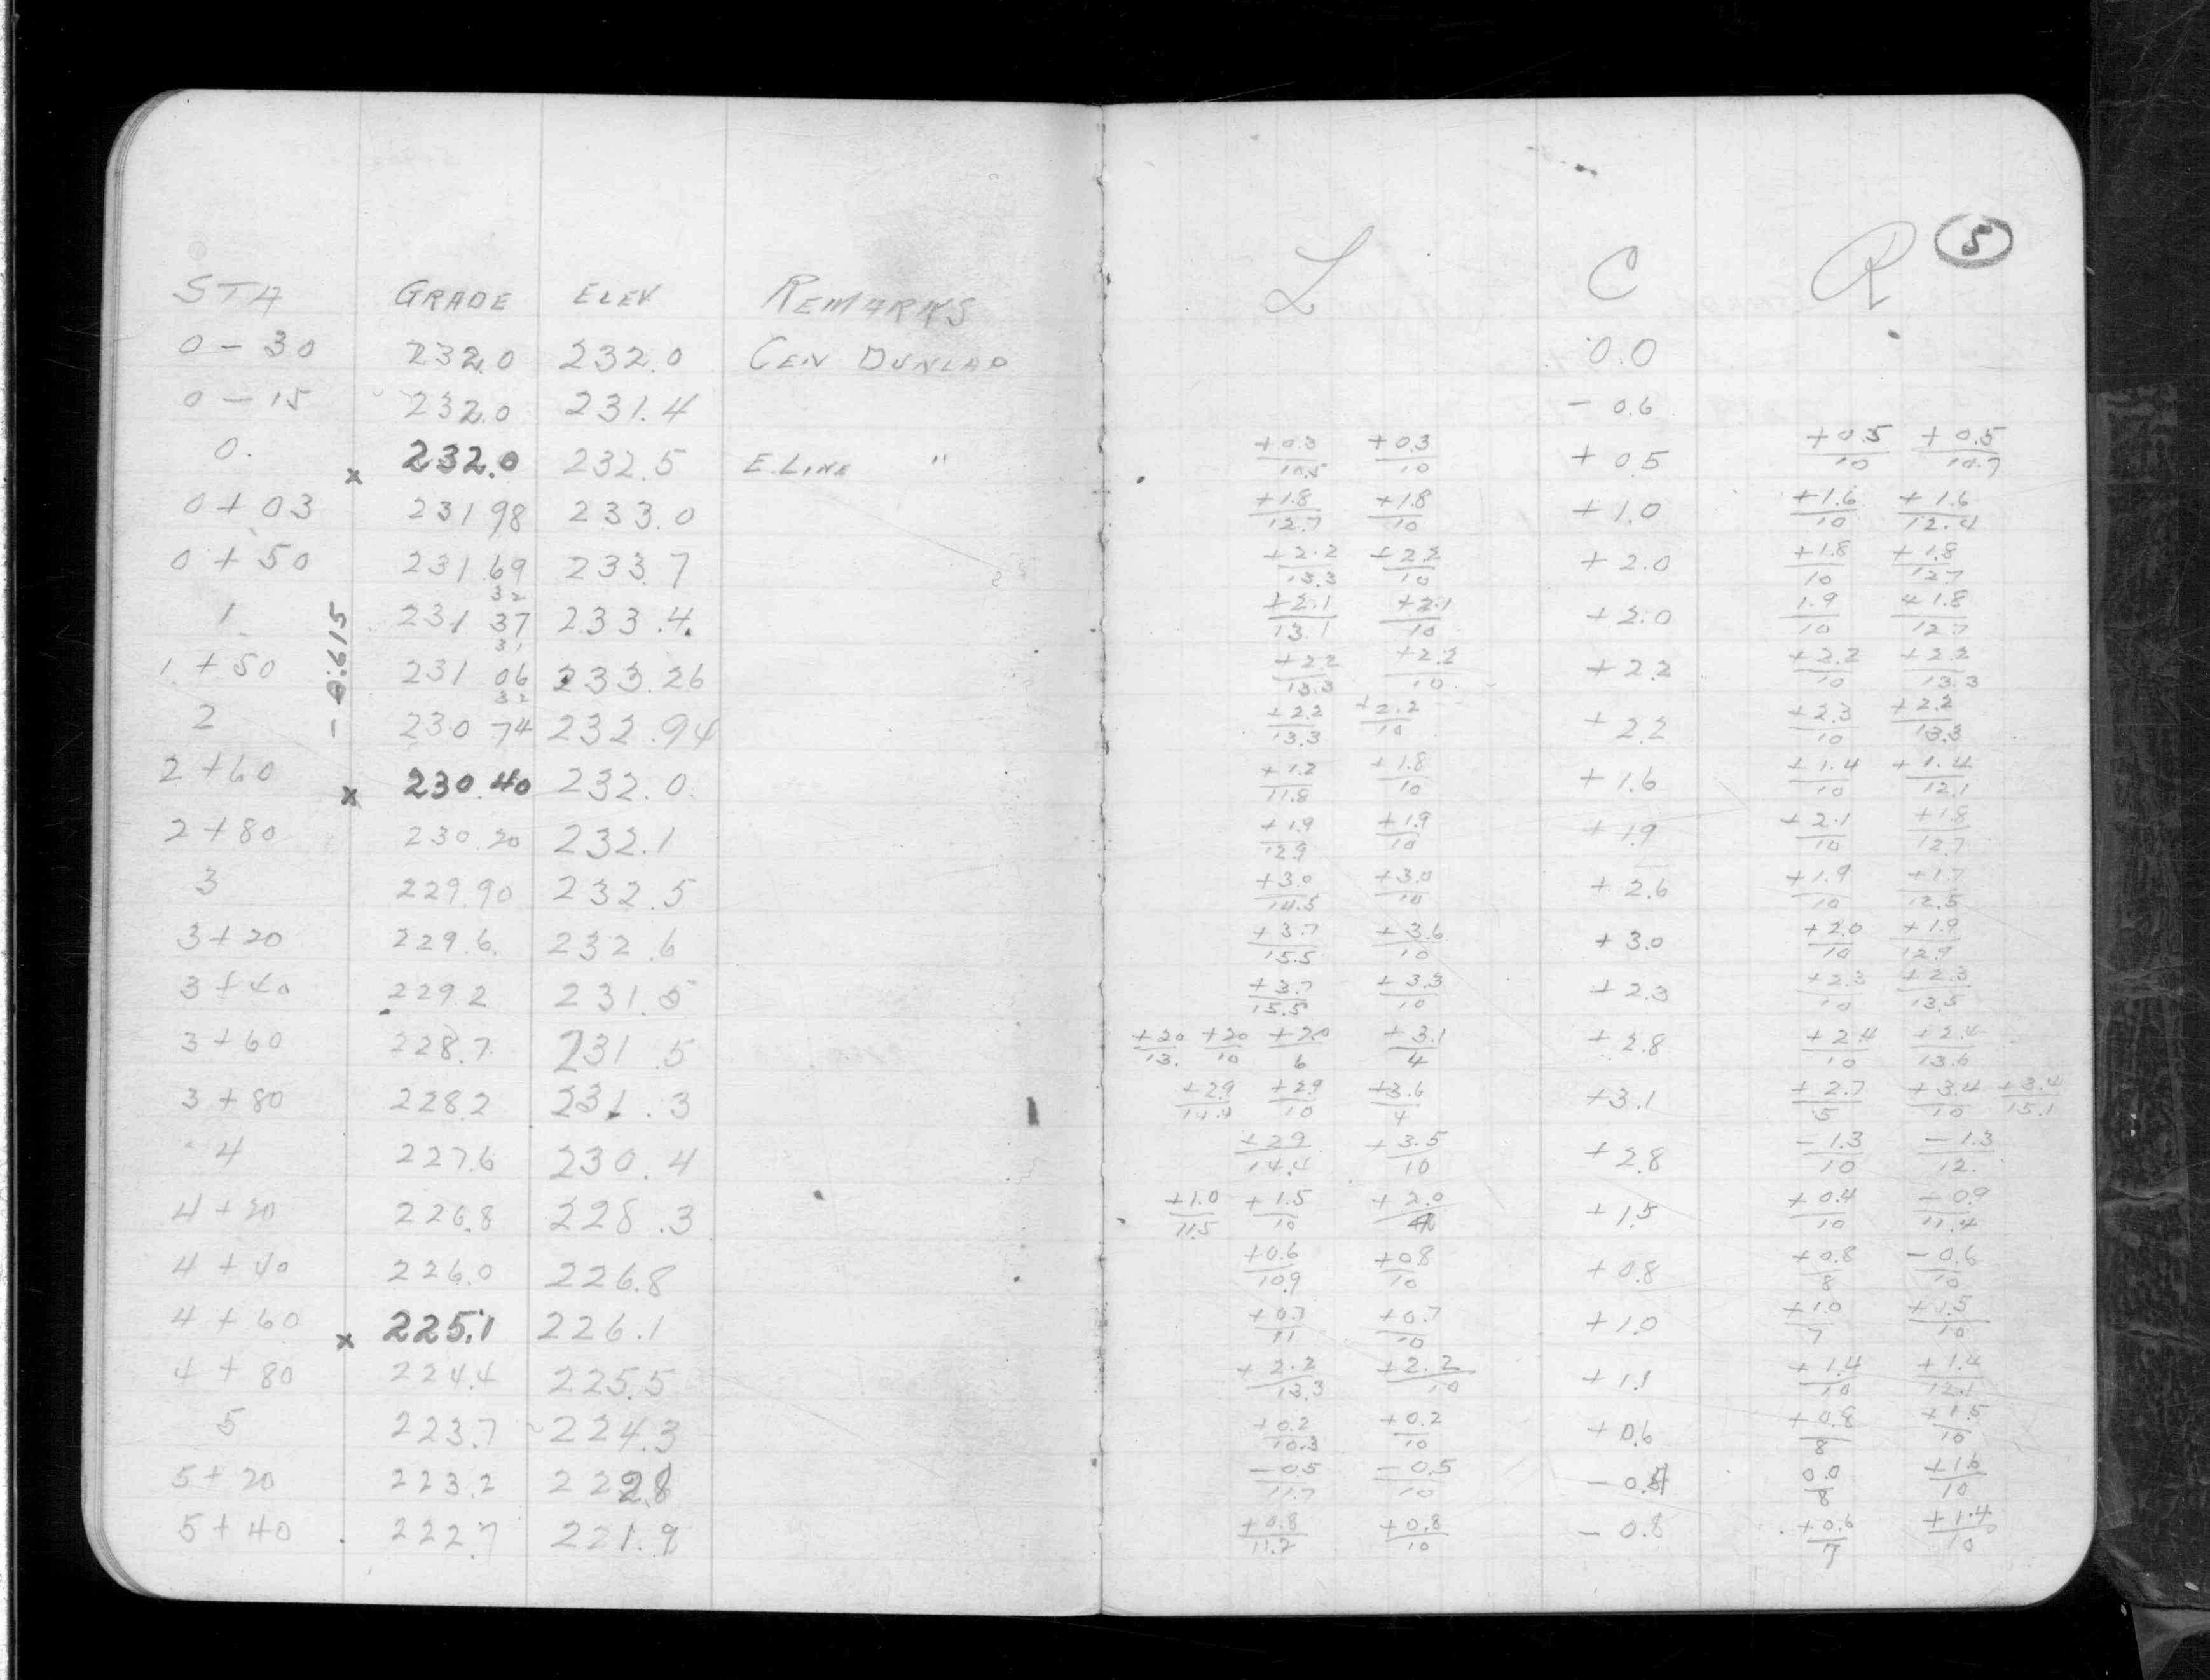 5
STA GRADE ELEV REMARKS L C R
0 - 30 232.0 232.0 CEN DUNLAP 0.0
0 - 15 232.0 231.4 - 0.6
0. x 232.0 232.5 E.LINE " +0.3/10.5 +0.3/10 + 0.5 +0.5/10 +0.5/10.7
0 + 03 231 98 233.0 +1.8/12.7 +1.8/10 + 1.0 +1.6/10 +1.6/12.4
0 + 50 231.69 233.7 +2.2/13.3 +2.2/10 + 2.0 +1.8/10 +1.8/12.7
32
1 231 37 233.4 +2.1/13.1 +2.1/10 + 2.0 1.9/10 +1.8/12.7
31
1 + 50 231 06 233.26 +2.2/13.3 +2.2/10 + 2.2 +2.2/10 +2.2/13.3
32
2 230 74 232.94 +2.2/13.3 +2.2/10 + 2.2 +2.3/10 +2.2/13.3
- 0.615
2 + 60 x 230.40 232.0. +1.2/11.8 +1.8/10 + 1.6 +1.4/10 +1.4/12.1
2 + 80 230.20 232.1 +1.9/12.9 +1.9/10 + 1.9 +2.1/10 +1.8/12.7
3 229.90 232.5 +3.0/14.5 +3.0/10 + 2.6 +1.9/10 +1.7/12.5
3 + 20 229.6. 232.6 +3.7/15.5 +3.6/10 + 3.0 +2.0/10 +1.9/12.9
3 + 40 229.2 231.5 +3.7/15.5 +3.3/10 + 2.3 +2.3/10 +2.3/13.5
3 + 60 228.7 231.5 +20/13. +20/10 +2.0/6 +3.1/4 + 2.8 +2.4/10 +2.4/13.6
3 + 80 228.2 231.3 +2.9/14.4 +2.9/10 +3.6/4 +3.1 +2.7/5 +3.4/10 +3.4/15.1
4 227.6 230.4 +2.9/14.4 +3.5/10 + 2.8 -1.3/10 -1.3/12.
4 + 20 226.8 228.3 +1.0/11.5 +1.5/10 +2.0/ + 1.5 +0.4/10 +0.9/11.4
4 + 40 226.0 226.8 +0.6/10.9 +0.8/10 + 0.8 +0.8/8 -0.6/10
4 + 60 x 225.1 226.1 +0.7/11 +0.7/10 + 1.0 +1.0/7 +1.5/10
4 + 80 224.4 225.5 +2.2/13.3 +2.2/10 + 1.1 +1.4/10 +1.4/12.1
5 223.7 224.3 +0.2/10.3 +0.2/10 + 0.6 +0.8/8 +1.5/10
5 + 20 223.2 222.8 -0.5/11.7 -0.5/10 - 0.4 0.0/8 +1.6/10
5 + 40 222.7 221.9 +0.8/11.2 +0.8/10 - 0.8 +0.6/7 +1.4/10